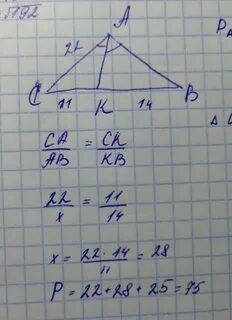 №792
A
22
C 11 K 14 B
CA/AB = CK/KB
22/x = 11/14
x = 22·14/11 = 28
P = 22+28+25=75
P
Δ